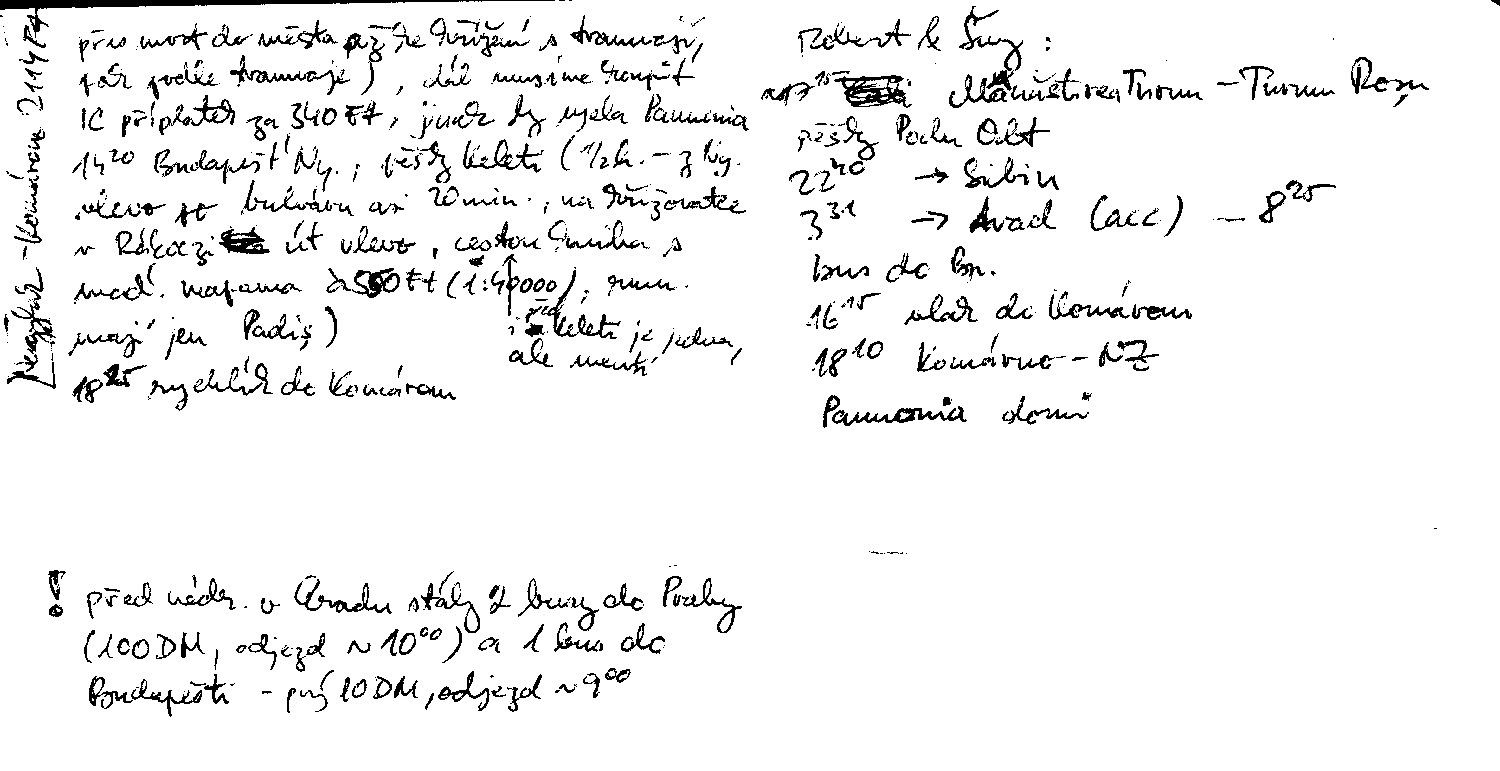 přes most do města až ke křížení s tramvají,
pak podle tramvaje), dál musíme koupit
IC příplatek za 340 Ft, jinak by ujela Pannonia
14²⁰ Budapešť Ny., pěšky Keleti (1/2h. – z Ny.
vlevo po bulváru asi 20 min., na křižovatce
v Rákoczi út vlevo, cestou kniha s
maď. mapama à 550 Ft (1:40000), rum.
mají jen Padiş)
i před Keleti je jedna,
ale menší
18²⁵ rychlík do Komárom
Komárom 211 Ft
Robert & Suzy:
Mănăstirea Turnu – Turnu Roşu
pěšky Podu Olt
22⁴⁰ → Sibiu
3³¹ → Arad (acc) – 8²⁵
bus do Bp.
16¹⁵ vlak do Komárom
18¹⁰ Komárno – NZ
Pannonia domů
! před nádr. v Aradu stály 2 busy do Prahy
(100 DM, odjezd ~ 10⁰⁰) a 1 bus do
Budapešti – prý 10 DM, odjezd ~ 9⁰⁰